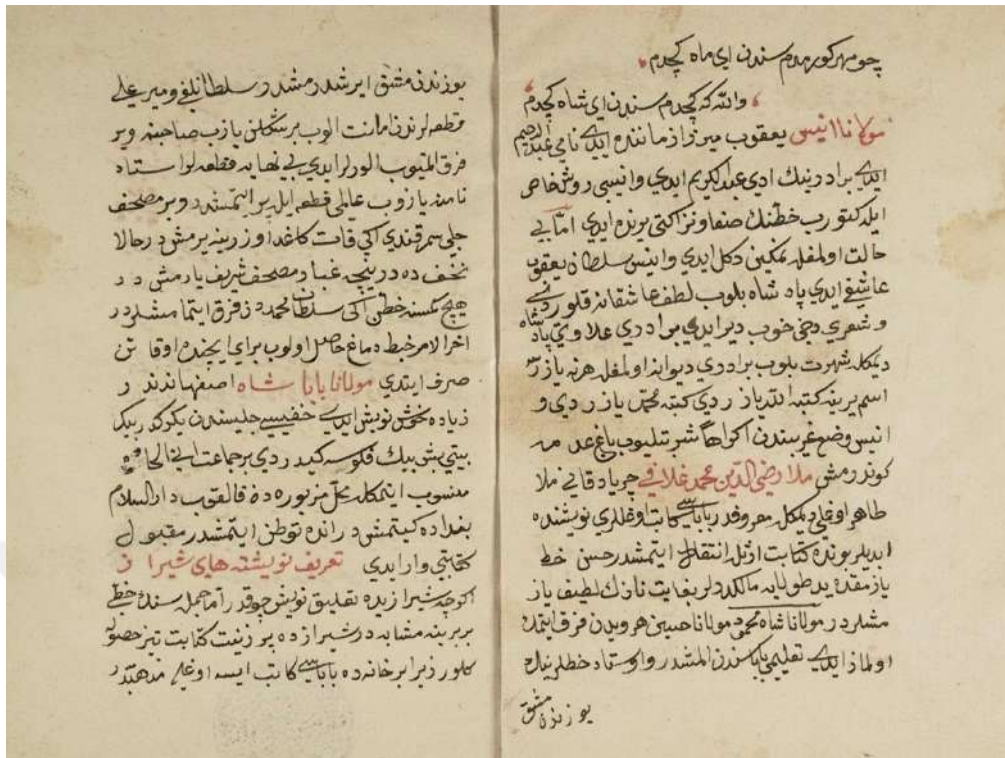 چو مهر کورمدم سندن ای ماه کچدم
والله که کچدم سندن ای شاه کچدم
مولانا انیس یعقوب میرزا زماننده ایدی نامی عبدالرحیم
ایدی برادرینك ادی عبدالکریم ایدی وانیسی روش خاص
ایله کتورب خطنك صفا ونزاکتی یرنده ایدی اما بی
حالت اولمغله تمکینی دکل ایدی وانیس سلطان یعقوب
عاشقی ایدی پادشاه بلوب لطف عاشقانه قلوردی
وشعری دخی خوب دیر ایدی برادری علاوی پادشاه
دیمکله شهرت بلوب برادری دیوانه اولمغله هر نه یازرسه
اسم یرینه کتبه الله یازردی کتبه محمد یازردی و
انیس وضع غریبندن اکواها شربتلیوب باغ عدنه
کوندرمش ملا رضی الدین محمد غلافی جربادقانی ملا
طاهر اوغلی دیمکله معروفدر باباسی کاتب اوغللری نویسنده
ایدیلر بونده کتابت ازلدن انتقال ایتمشدر حسن خط
یازمقده ید طولایه مالکدرلر بغایت نازك لطیف یاز
مشلردر مولانا شاه محمود مولانا حسین هرویدن فرق ایتمك
اولماز ایدی تعلیمی باباسندن المشدر واوستاد خطلرینك
یوزندن مشق
یوزندن مشق ایرشدرمشدر سلطانعلی و میر علی
قطعه لرندن امانت الوب بر شکلن یازب صاحبنه ویر
فرق ایتمیوب الورلر ایدی بی نهایه قطعه لر استاد
نامنه یازوب عالمی قطعه ایله پر ایتمشدر و بر مصحف
جلی سمرقندی اکی قات کاغد اوزرینه یرمشدر حالا
نجف ده در نیچه غبار مصحف شریف یازمش در
هیچ کمسنه خطن اکی سلطان محمددن فرق ایتمامشلردر
اخرالامر خبط دماغ حاصل اولوب برای ایچنده اوقاتن
صرف ایتدی مولانا بابا شاه اصفهاندندر
زیاده خوش نویس ایدی خفیسی جلیسندن یکرکدر بیك
بیتی بش بیك فلوسه کیدردی بر جماعت الحاده
منسوب ایتمکله محل مزبورده قالمیوب دارالسلام
بغداده کیتمشدر انده توطن ایتمشدر مقبول
کتابتی وار ایدی تعریف نویسنده های شیراز
اکرچه شیرازده تعلیق نویس چوقدر اما جمله سنك خطی
بربرینه مشابه در شیرازده یوزنعت کتابت تیز حصوله
کلور زیرا بر خانه ده باباسی کاتب ایسه اوغلی مذهبدر